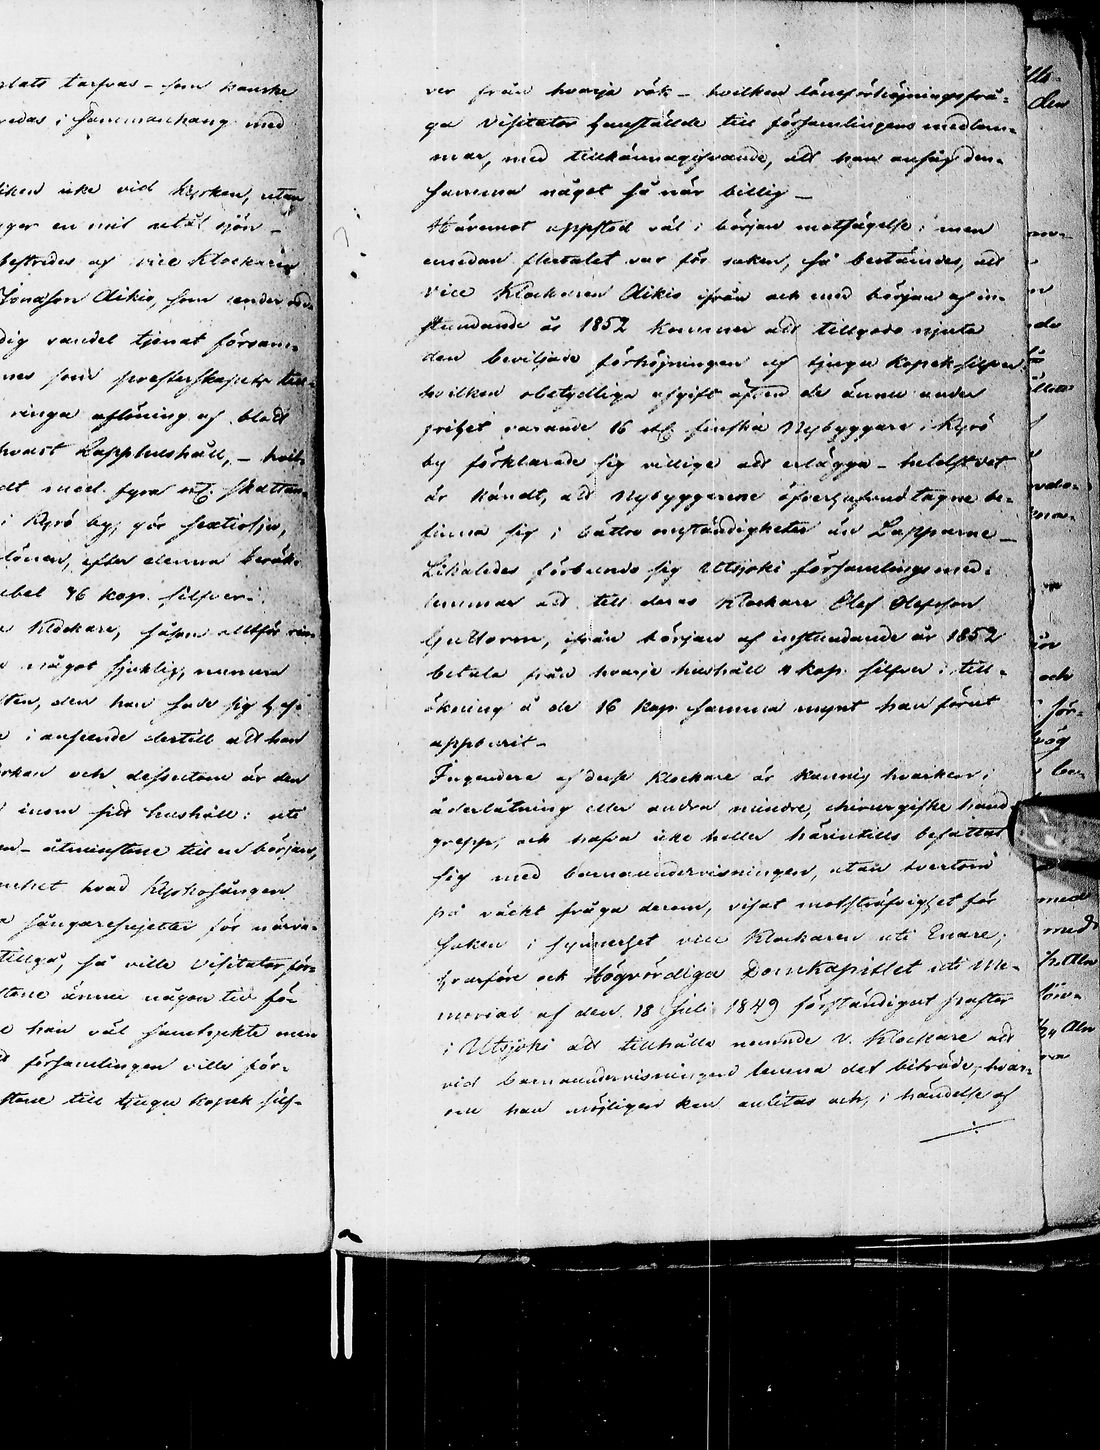 plats tarfvas – som kanske
redas i sammanhang med
liken icke vid kyrkan, utan
ger en mil utåt sjön –
bestrides af vice Klockaren
Jonasson Aikio, som under
dig vandel tjenat försam-
nes som presterskapets
ringa aflöning af blott
hvart Lapphushåll, – hvil-
dt med fyra st. skattan-
i Kyrö by, gör sextiosju,
lönen, efter denna beräk-
ubel 46 kop. silfver.
Klockare, såsom alltför
något sjuklig, numera
den han sade sig
i anseende dertill att han
och dessutom är den
inom sitt hushåll: uti
– åtminstone till en början,
mycket hvad Kyrkosången
sångaresujetter för närva-
tillgå, så ville Visitator för-
ännu någon tid
han väl samtyckte men
församlingen ville för-
till tjugu kopek silf-
ver från hvarje rök – hvilken löneförhöjningsfrå-
ga Visitator hemställde till församlingens medlem-
mar, med tillkännagifvande, att han ansåg den-
samma något så när billig –
Häremot uppstod väl i början motsägelse; men
emedan flertalet var för saken, så bestämdes, att
vice Klockaren Aikio ifrån och med början af in-
stundande år 1852 kommer att tillgodo njuta
den beviljade förhöjningen af tjugu kopek silfver
hvilken obetydliga afgift äfven de ännu under
frihet varande 16 st. finska Nybyggare i Kyrö
by förklarade sig villige att erlägga – helst det
är kändt, att Nybyggarene öfverhufvud tagne be-
finna sig i bättre omständigheter än Lapparne –
Likaledes förbundo sig Utsjoki församlings med-
lemmar att till deras Klockare Olof Olofsson
Guttorm, ifrån början af instundande år 1852
betala från hvarje hushåll 4 kop. silfver i till-
ökning å de 16 kop. samma mynt han förut
uppburit –
Ingendera af desse Klockare är kunnig hvarken i
åderlåtning eller andra mindre, chirurgiske hand-
grepp, och hafva icke heller härintills befattat
sig med barnaundervisningen, utan tvertom
på väckt fråga derom, visat motsträfvighet för
saken i synnerhet vice Klockaren uti Enare,
hvarföre ock Högvördiga Domkapitlet uti Me-
morial af den 18 Juli 1849 förständigat pastor
i Utsjoki att tillhålla nemnde v. Klockare att
vid barnaundervisningen lemna det biträde, hvar-
om han möjligen kan anlitas och, i händelse af